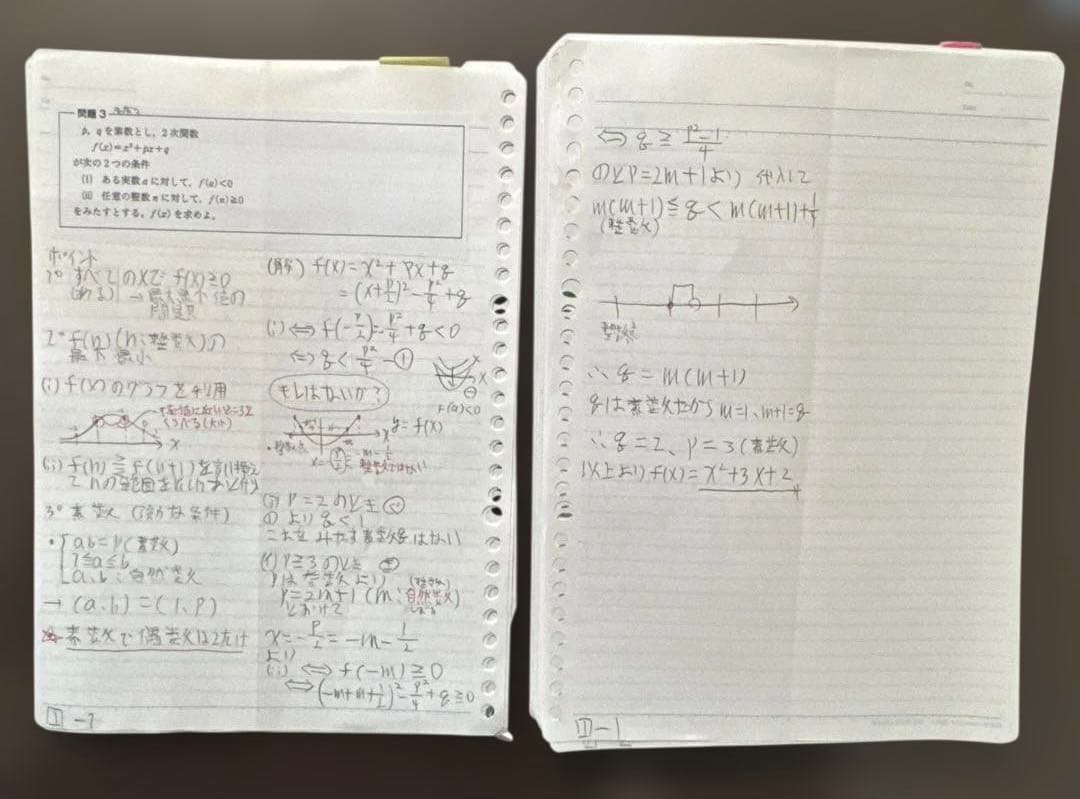 問題3
p, qを素数とし、2次関数
f(x)=x²+px+q
が次の2つの条件
(i) ある実数aに対して、f(a)<0
(ii) 任意の整数nに対して、f(n)≧0
をみたすとする。f(x)を求めよ。
ポイント
1° すべてのxでf(x)≧0
(ある)→最大最小値の
問題
2° f(n)(n:整数)の
最大最小
(i) f(x)のグラフを利用
x
(ii) f(n)≧f(n+1)を
てnの範囲を
3° 素数(効な条件)
・ab=p(素数)
1≦a≦b
a, b:自然数
→(a,b)=(1,p)
素数で偶数は2だけ
I-1
(解) f(x)=x²+px+q
=(x+p/2)²-p²/4+q
(i)⇔f(-p/2)=-p²/4+q<0
⇔q<p²/4 —①
キレはないか?
x
f(a)<0
y=f(x)
・整数点
x=-p/2=-m-1/2
整数ではない
(ア) p=2のとき
①よりq<1
これをみたす素数qはない
(イ) p≧3のとき
pは奇数より
(整数)
p=2m+1(m:自然数)
とおけて
x=-p/2=-m-1/2
より
(ii)⇔f(-m)≧0
⇔(-m+m+1/2)²-p²/4+q≧0
⇔q≧(p²-1)/4
①とp=2m+1より代入して
m(m+1)≦q<m(m+1)+1/4
(整数)
整数点
∴q=m(m+1)
qは素数だからm=1, m+1=q
∴q=2, p=3(素数)
以上よりf(x)=x²+3x+2
II-1